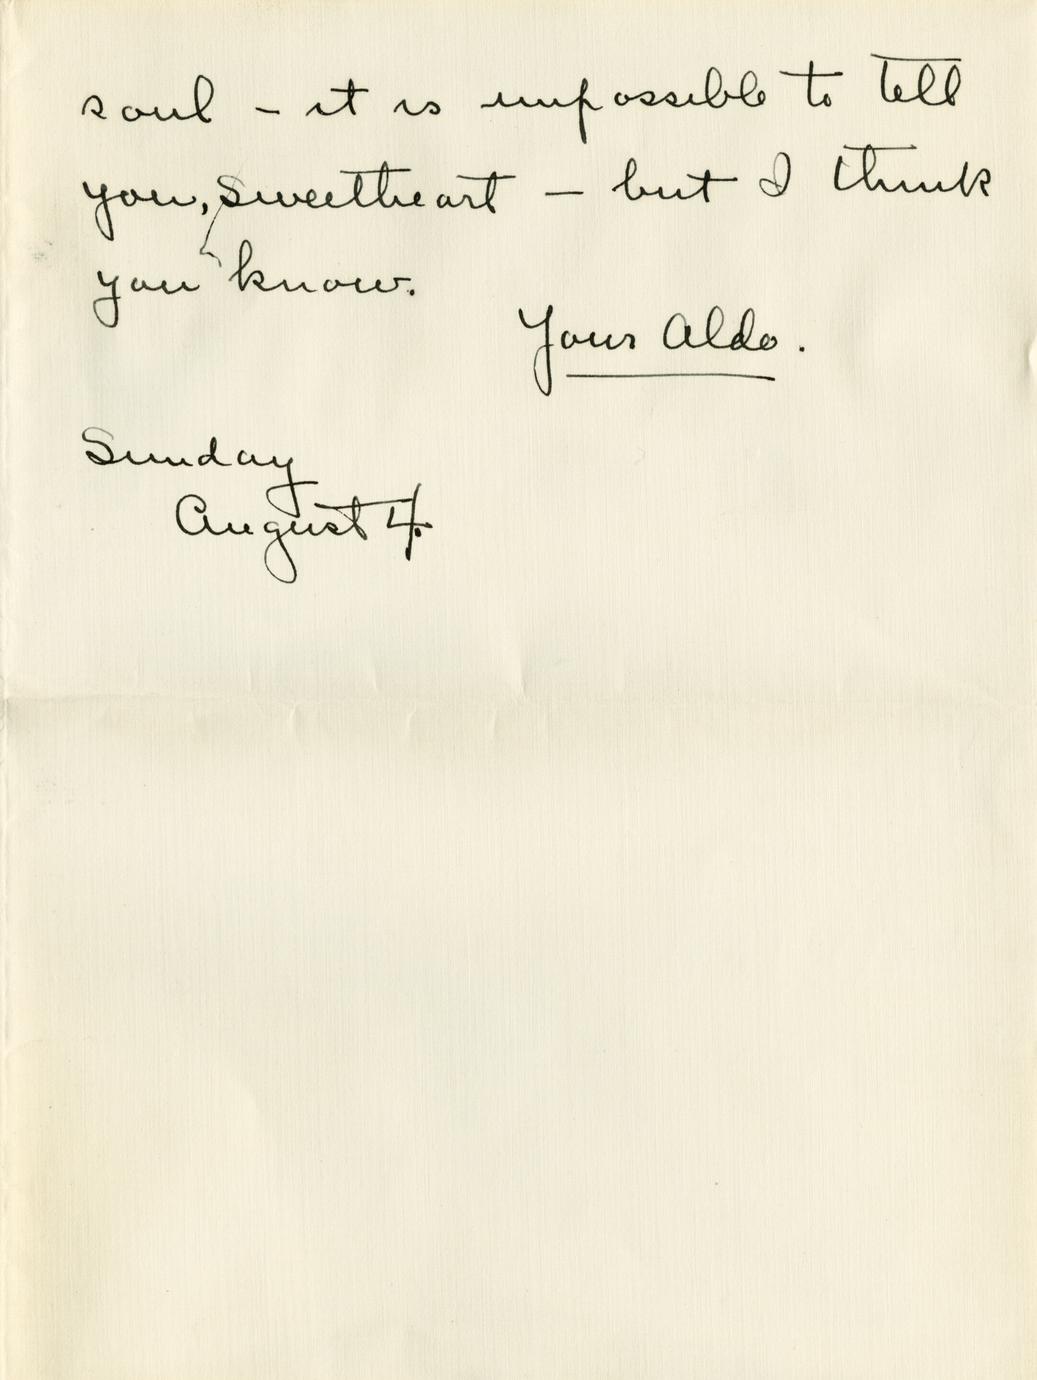 soul – it is impossible to tell
you, sweetheart – but I think
you know.
Your Aldo.
Sunday
August 4.